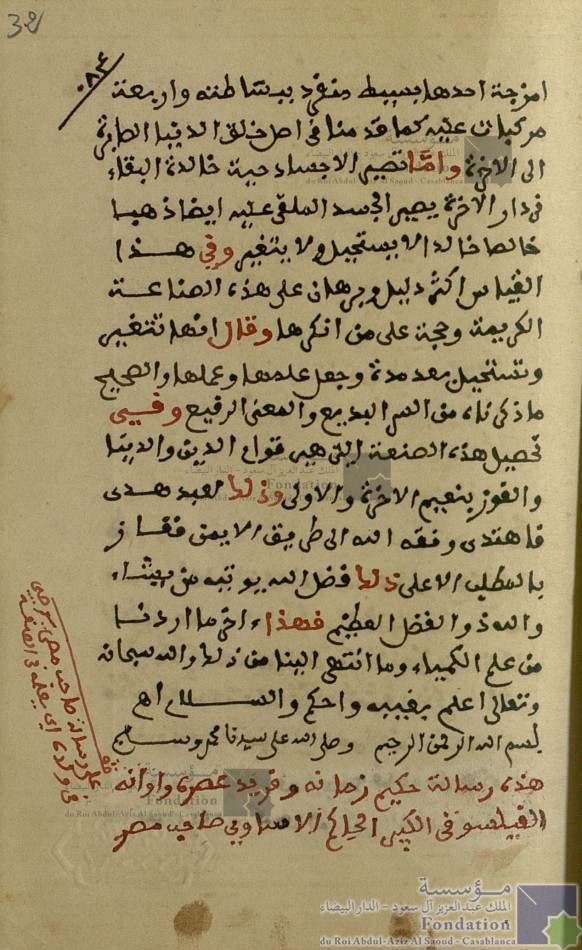 32
امزجة احدها بسيط منفرد ببساطته واربعة
مركبات عليه كما قدمنا في اصل خلق الدنيا الصايرة
الى الاخرة واما تصير الاجساد حية خالدة البقاء
في دار الاخرة يصير الجسد الملقى عليه ايضا ذهبا
خالصا خالدا لا يستحيل ولا يتغير وفي هذا
القياس اكثر دليل وبرهان على هذه الصناعة
الكريمة وحجة على من انكرها وقال انها تتغير
وتستحيل بعد مدة وجعل علمها وعملها والصحيح
ما ذكرناه من السر البديع والمعنى الرفيع وفيي
تحصيل هذه الصنعة التي هي قوام الدين والدنيا
والفوز بنعيم الاخرة والاولى وذلك لعبد هدى
فاهتدى وفقه الله الى طريق الايمن ففاز
بالمطلب الاعلى ذلك فضل الله يوتيه من يشاء
والله ذو الفضل العظيم فهذا اخر ما اردنا
من علم الكمياء وما انتهى الينا من ذلك والله سبحانه
وتعالى اعلم بغيبه واحكم والسلام اهـ
بسم الله الرحمن الرحيم وصلى الله على سيدنا محمد وسلم
هذه رسالة حكيم زمانه وفريد عصره واوانه
الفيلسوف الكبير صاحب مصر
مؤسسة
الملك عبد العزيز آل سعود - الدار البيضاء
Fondation
du Roi Abdul-Aziz Al Saoud - Casablanca